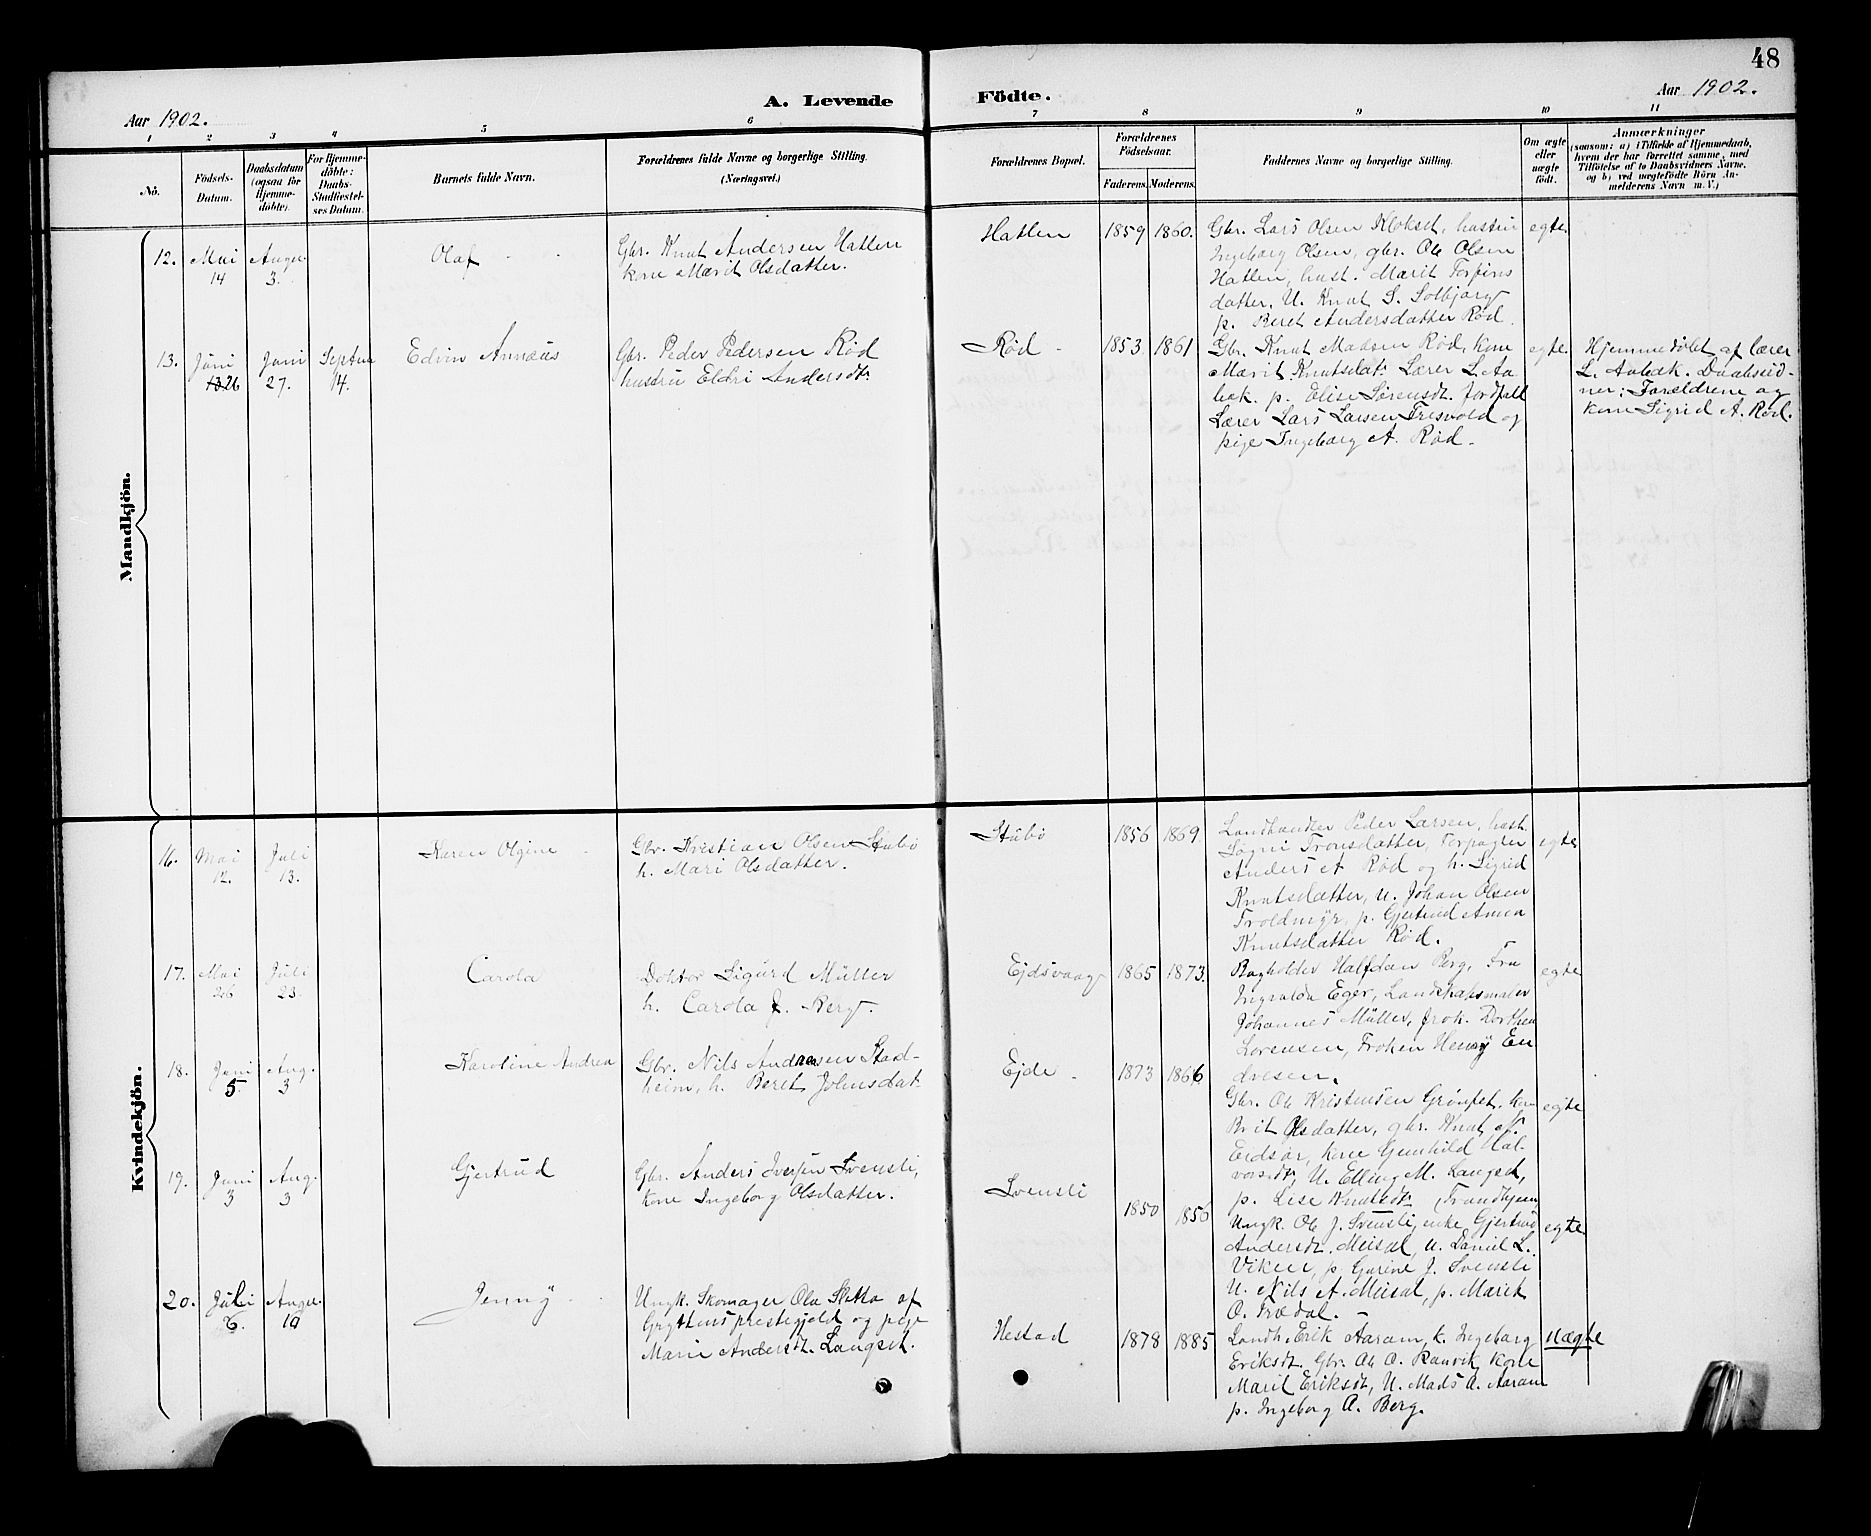 48
A. Levende Födte.
Aar 1902.
Aar 1902.
1 2 3 4 5 6 7 8 9 10 11
No.
Födsels-
Datum.
Daabsdatum
(ogsaa for
Hjemme-
döbte).
For Hjemme-
döbte:
Daabs-
Stadfæstel-
ses Datum.
Barnets fulde Navn.
Forældrenes fulde Navne og borgerlige Stilling.
(Næringsvei.)
Forældrenes Bopæl.
Forældrenes
Födselsaar.
Faderens. Moderens.
Faddernes Navne og borgerlige Stilling.
Om ægte
eller
uægte
födt.
Anmærkninger
(saasom: a) i Tilfælde af Hjemmedaab,
hvem der har forrettet samme, med
Tilföielse af to Daabsvidners Navne,
og b) ved uægtefödte Börn An-
melderens Navn m. V.)
Mandkjön.
12. Mai
14
Augu.
3.
Olaf
Gbr. Knut Andersen Hatlen
kone Marit Olsdatter.
Hatlen
1859 1860.
Gbr. Lars Olsen Klokset, hustru
Ingeborg Olsen, gbr. Ole Olsen
Hatlen, hust. Marit Torfins
datter. U. Knut S. Solbjørg
p. Beret Andersdatter Rød.
egte
13. Juni
13 26
Juni
27.
Septem
14.
Edvin Annæus
Gbr. Peder Pedersen Rød
hustru Eldri Andersdtr
Rød
1853 1861
Gbr. Knut Madsen Rød, kone
Marit Knutsdat: Lærer L. Aa
bak. p. Elise Sørensdt. Jordfald
Lærer Lars Larsen Tresvold og
pige Ingeborg A. Rød.
egte
Hjemmedøbt af lærer
L. Aabak. Daabsvid-
ner: Forældrene og
kone Sigrid A. Rød.
Kvindekjön.
16. Mai
12.
Juli
13.
Karen Olgine
Gbr. Kristian Olsen Stubø
h. Mari Olsdatter.
Stubø
1856 1869
Landhandler Peder Larsen, hust.
Søgni Tronsdatter, Forpagter
Anders A Rød og h. Sigrid
Knutsdatter, u. Johan Olsen
Troldmyr, p. Gjertrud Anna
Knutsdatter Rød.
egte
17. Mai
26
Juli
23.
Carola
Doktor Sigurd Müller
h. Carola J. Berg.
Ejdsvaag
1865 1873.
Bogholder Halfdan Berg, Fru
Ingvalda Eger, Landskabsmaler
Johannes Müller, frøk. Dorthea
Lorensen, Frøken Henny En
dresen.
egte
18. Juni
5
Aug.
3
Karoline Andrea
Gbr. Nils Andreasen Stad-
heim, h. Beret Johnsdat.
Ejde
1873 1866
Gbr. Ole Kristensen Grønset, kone
Brit Olsdatter, gbr. Knut N.
Eidsør, kone Gunhild Hal
vorsdt, U. Elling M. Langset,
p. Lise Knutsdt (Trondhjem)
egte
19. Juni
3
Aug.
3
Gjertrud
Gbr. Anders Iversen Svensli,
kone Ingeborg Olsdatter.
Svensli
1850 1856
Ungk. Ole J. Svensli, enke Gjertrud
Andersdt. Meisal, u. Daniel L.
Viken, p. Gurine J. Svensli
U. Nils A. Meisal, p. Marit
O. Trædal.
egte
20. Juli
6.
Augu.
10
Jenny
Ungk. Skomager Ola Sletta af
Grythens prestegjeld og pige
Marie Andersdt. Langset.
Hestad
1878 1885
Landh. Erik Aaram, k. Ingeborg
Eriksdt. Gbr. Ole O. Ranvik, kone
Marit Eriksdt, U. Mads A. Aaram
p. Ingeborg A. Berg.
uægte